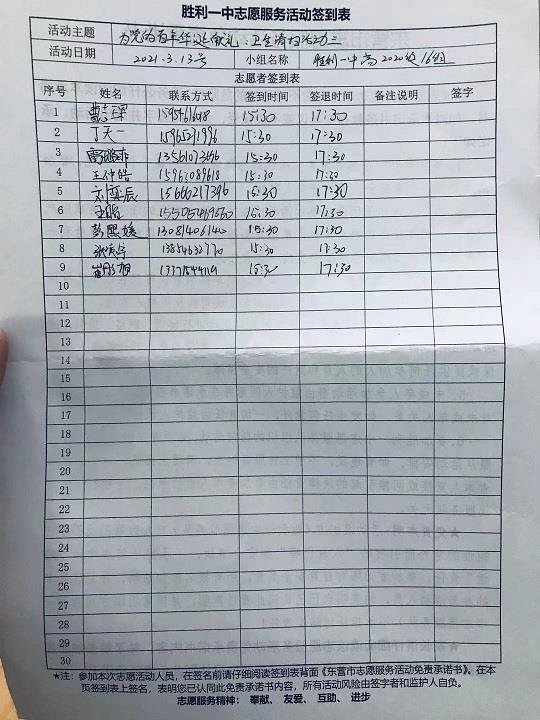 胜利一中志愿服务活动签到表
活动主题 为党的百年华诞献礼：卫生清扫活动三
活动日期 2021.3.13号 小组名称 胜利一中高2020级16组
志愿者签到表
序号 姓名 联系方式 签到时间 签退时间 备注说明 签字
1 15:30 17:30
2 丁天一 15965271996 15:30 17:30
3 13561073696 15:30 17:30
4 王仲皓 15963089618 15:30 17:30
5 刘奕辰 15666217396 15:30 17:30
6 15:30 17:30
7 彭熙媛 13081406140 15:30 17:30
8 13854632770 15:30 17:30
9 15:30 17:30
10
11
12
13
14
15
16
17
18
19
20
21
22
23
24
25
26
27
28
29
30
★注：参加本次志愿活动人员，在签名前请仔细阅读签到表背面《东营市志愿服务活动免责承诺书》。在本
页签到表上签名，表明您已认同此免责承诺书内容，所有活动风险由签字者和监护人自负。
志愿服务精神： 奉献、 友爱、 互助、 进步